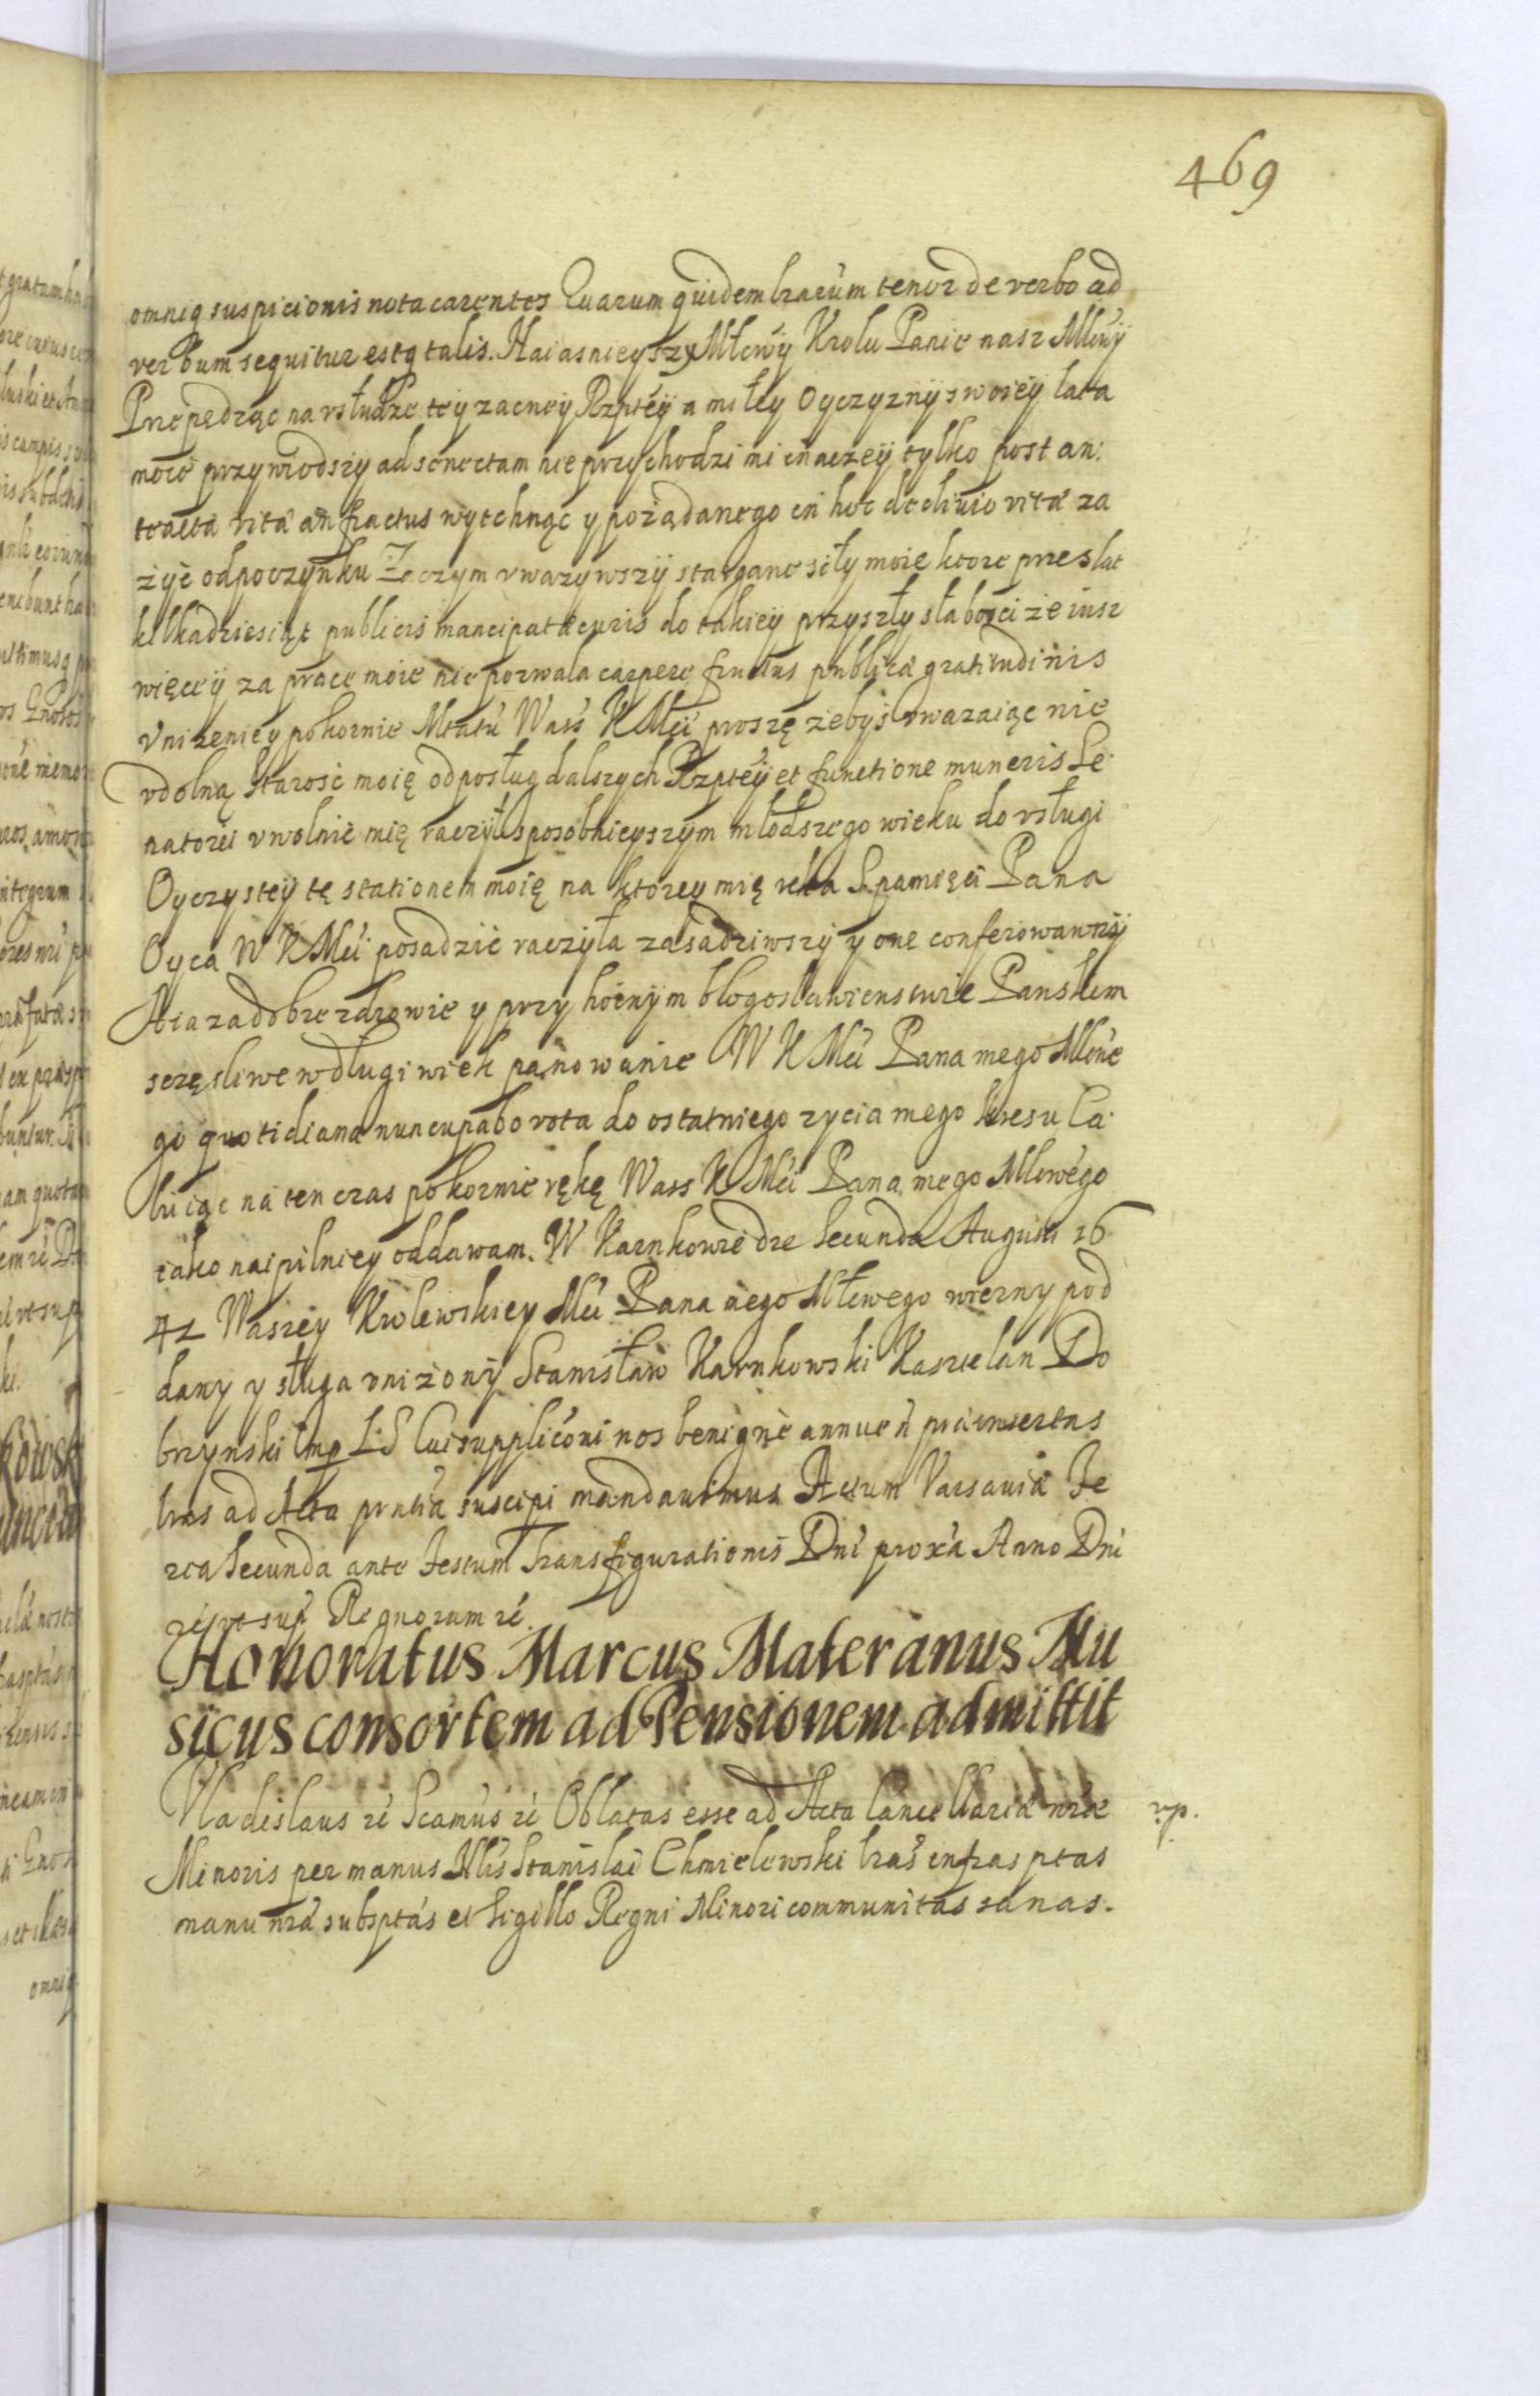 469
omniq suspicionis nota carentes Quarum quidem lrarum tenor de verbo ad
verbum sequitur estq talis. Naiasnieyszy Młcwy Krolu Panie nasz Młcwy
Przepędząc na vsłudze tey zacney Rzptey a miłey Oyczyzny swoiey lata
moie przywiodszy ad senectam nie przychodzi mi inaczey tylko post an:
teacta vitæ anfractus wytchnąc y pożądanego in hoc declivio vitæ za
żyć odpoczynku Zaczym vwazywszy stargane siły moie ktore przes lat
kilkadziesiąt publicis mancipatæ curis do takiey przyszły słabosci że iusz
więcey za prace moie nie pozwala carpere fructus publicæ gratitudinis
Vnizeniey pokornie Mtatu Wass K Mci proszę żebys vwazaiąc nie
vdolną starosć moię od posług dalszych Rzptey et functione muneris Se
natorii vwolnić mię raczył sposobnieyszym młodszego wieku do vsługi
Oyczystey tę stationem moię na ktorey mię ręka S pamięci Pana
Oyca W K Mci posadzić raczyła zasadziwszy y one conferowawszy
Aia za dobre zdrowie y przy hoinym błogosławienstwie Panskim
szczęsliwe w długi wiek panowanie W K Mci Pana mego Młwe
go quotidiana nuncupabo vota do ostatniego zycia mego kresu Ca
łuiąc na ten czas pokornie rękę Wass K Mci Pana mego Młwego
iako naipilniey oddawam. W Karnkowie die Secunda Augusti 16
41 Waszey Krolewskiey Mci Pana mego Młcwego wierny pod
dany y sługa vniżony Stanisław Karnkowski Kasztelan Do
brzynski mp L: S Cui supplicõni nos benignè annuen præinsertas
lras ad Acta prntia suscipi mandavimus Actum Varsaviæ Fe
ria Secunda ante Festum Transfigurationis Dni proxa Anno Dni
ut sup Regnorum
Honoratus Marcus Materanus Mu
sicus consortem ad Pensionem admittit
Vladislaus Scamus Oblatas esse ad Acta Cancellariæ nræ
Minoris per manus Stanislai Chmielewski lras infrasptas
manu nra subsptas et Sigillo Regni Minori communitas sanas.